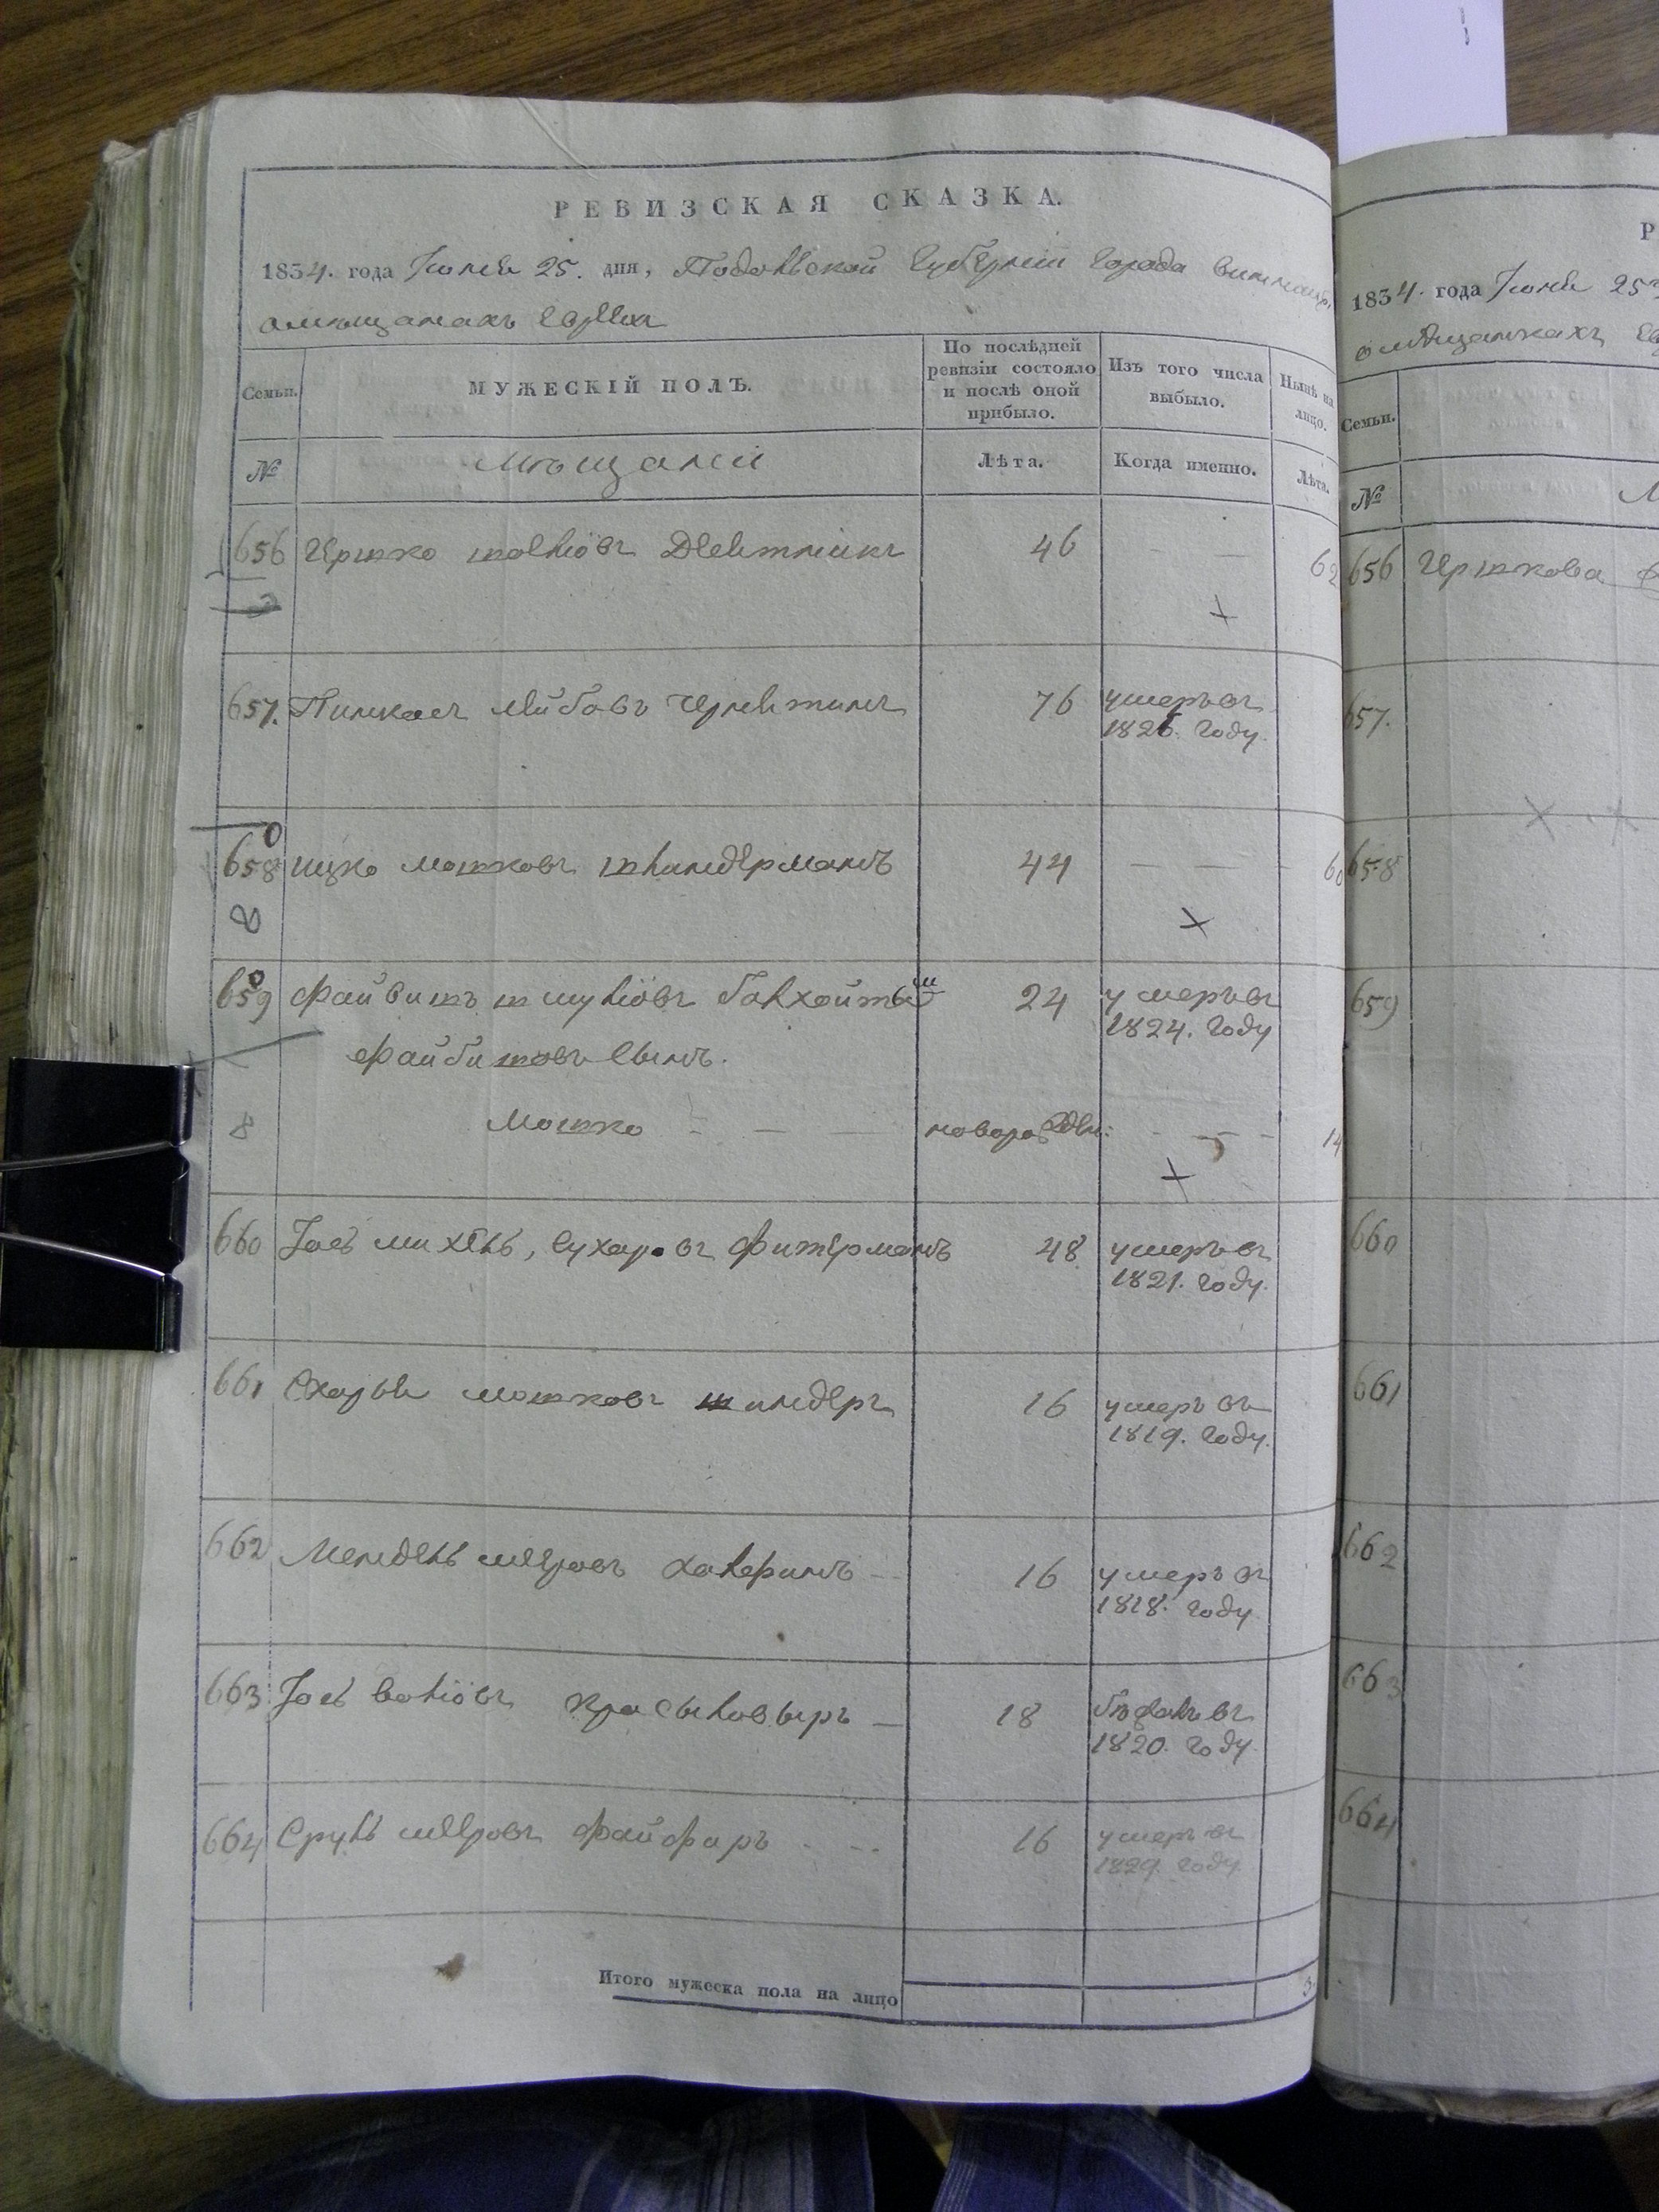 РЕВИЗСКАЯ СКАЗКА.
1834. года Іюня 25. дня, Подольской Губерніи Города Винницы,
о мѣщанахъ Евреях
Семьи.
МУЖЕСКІЙ ПОЛЪ.
По послѣдней ревизіи состояло и послѣ оной прибыло.
Изъ того числа выбыло.
Нынѣ на лицо.
№
Мѣщане
Лѣта.
Когда именно.
Лѣта.
656 Гершко 46 — — 62
657. Пинкасъ Лейбовъ 76 умеръ въ
1826. Году.
658 Ицко Мошковъ Шлиндерманъ 44 — — 60
8
659 Файвишъ Шмулiовъ 24 умеръ въ
1824. Году
Файбишовъ Сынъ.
8 Мошко — — — новорожден: - - - 14
660 Іосъ Михель, Сухаровъ Фитерманъ 48 умеръ въ
1821. году.
661 Схарыя Мошковъ Шиндеръ 16 умеръ въ
1819. Году.
662 Мендель Мееровъ Халеринъ 16 умеръ въ
1818. году
663 Іось Волiовъ Красыловыръ — 18 бѣжалъ въ
1820. Году.
664 Сруль Мееровъ Файферъ 16 умеръ въ
1829. году.
Итого мужеска пола на лицо
3
Р
1834. года Іюня 25
о мѣщанкахъ
Семьи.
№
М
656 Гершкова
657.
658
659
660
661
662
663
664